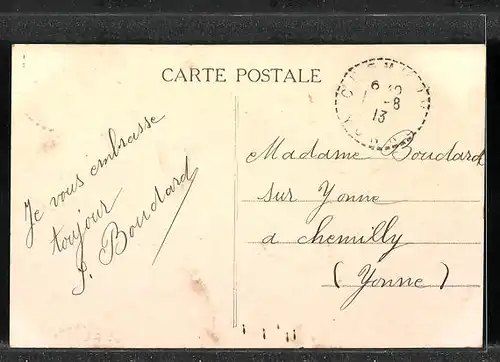 CARTE POSTALE
Je vous embrasse
toujour
S. Boudard
6 10
1 -8
13
Madame Boudard
sur Yonne
a chemilly
(Yonne)